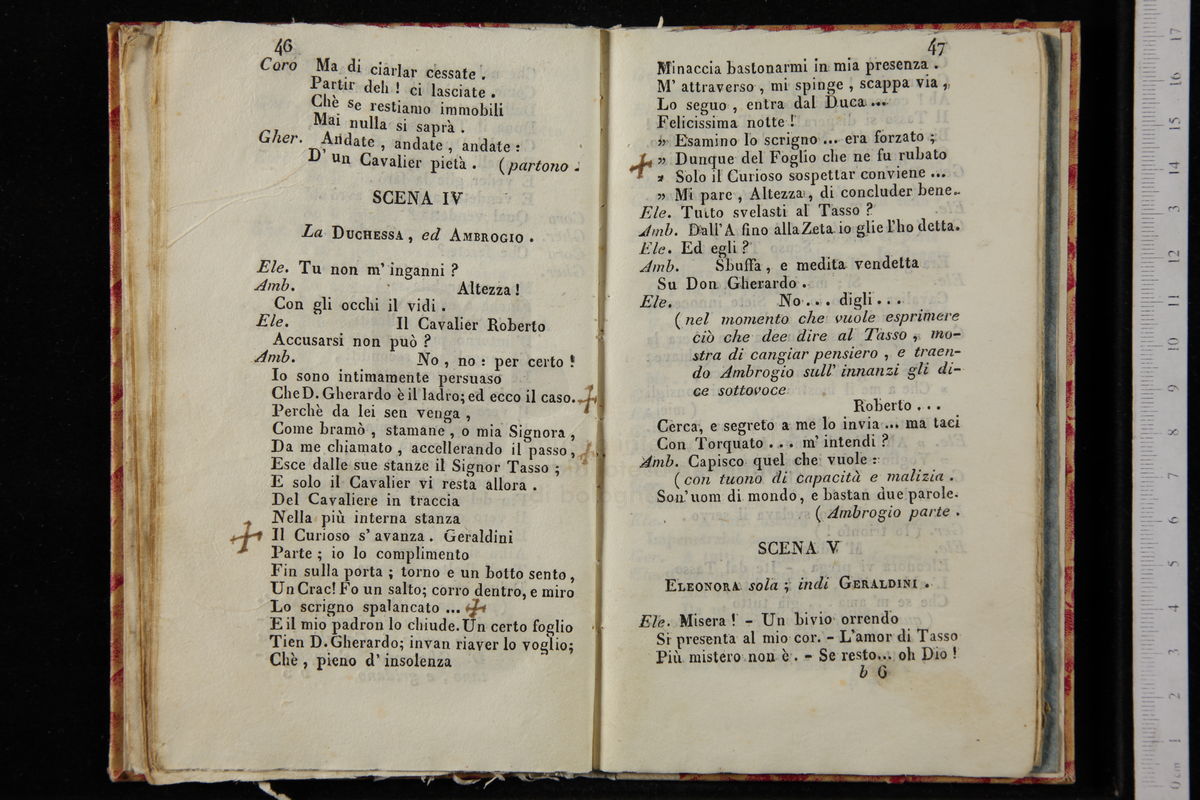 46
Coro Ma di ciarlar cessate .
Partir deh ! ci lasciate .
Chè se restiamo immobili
Mai nulla si saprà .
Gher. Andate , andate , andate :
D' un Cavalier pietà . (partono .
SCENA IV
La DUCHESSA , ed AMBROGIO .
Ele. Tu non m' inganni ?
Amb. Altezza !
Con gli occhi il vidi .
Ele. Il Cavalier Roberto
Accusarsi non può ?
Amb. No , no : per certo !
Io sono intimamente persuaso
Che D. Gherardo è il ladro; ed ecco il caso.
Perchè da lei sen venga ,
Come bramò , stamane , o mia Signora ,
Da me chiamato , accellerando il passo ,
Esce dalle sue stanze il Signor Tasso ;
E solo il Cavalier vi resta allora .
Del Cavaliere in traccia
Nella più interna stanza
Il Curioso s' avanza . Geraldini
Parte ; io lo complimento
Fin sulla porta ; torno e un botto sento ,
Un Crac! Fo un salto; corro dentro, e miro
Lo scrigno spalancato ...
E il mio padron lo chiude. Un certo foglio
Tien D. Gherardo; invan riaver lo voglio;
Chè , pieno d' insolenza
47
Minaccia bastonarmi in mia presenza .
M' attraverso , mi spinge , scappa via ,
Lo seguo , entra dal Duca ...
Felicissima notte !
" Esamino lo scrigno ... era forzato ;
" Dunque del Foglio che ne fu rubato
" Solo il Curioso sospettar conviene ...
" Mi pare , Altezza , di concluder bene.
Ele. Tutto svelasti al Tasso ?
Amb. Dall'A fino alla Zeta io glie l'ho detta.
Ele. Ed egli ?
Amb. Sbuffa , e medita vendetta
Su Don Gherardo .
Ele. No ... digli ...
(nel momento che vuole esprimere
ciò che dee dire al Tasso , mo-
stra di cangiar pensiero , e traen-
do Ambrogio sull' innanzi gli di-
ce sottovoce
Roberto ...
Cerca, e segreto a me lo invia ... ma taci
Con Torquato ... m' intendi ?
Amb. Capisco quel che vuole :
(con tuono di capacità e malizia .
Son' uom di mondo, e bastan due parole.
( Ambrogio parte .
SCENA V
ELEONORA sola ; indi GERALDINI .
Ele. Misera ! - Un bivio orrendo
Si presenta al mio cor. - L'amor di Tasso
Più mistero non è . - Se resto... oh Dio !
b 6